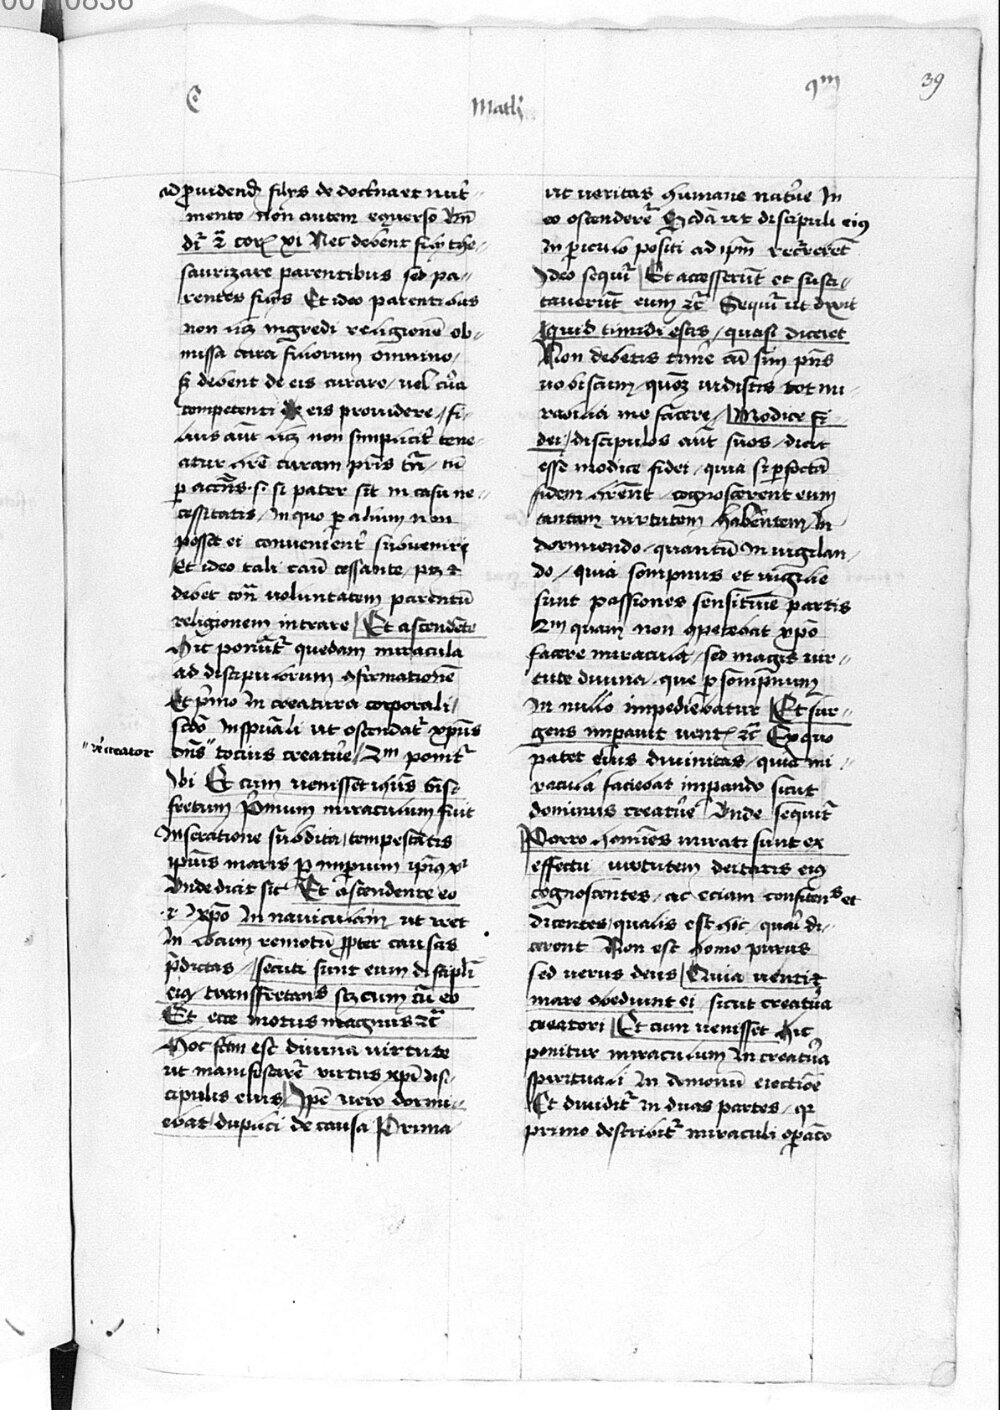 00 0836
C Math 9m 39
ad prouidend filijs de doctna et nut-
mento non autem econuerso Vn
dr 2 cor xi Nec debent filij the-
saurizare parentibus sed pa-
rentes filijs Et ideo parentibus
non licz ingredi religionem ob-
missa cura filiorum omnino
sz debent de eis curare vel cura
competenti eis prouidere fi-
lius aut licz non simplicit tene-
atur hre curam pris tn
p accns si pater sit in casu ne-
cessitatis in quo p alium non
posset ei conuenient subueniri
Et ideo tali casu cessante
debet contra voluntatem parentum
religionem intrare Et ascendente
Hic ponuntur quedam miracula
ad discipulorum confirmationem
Et primo in creatura corporali
secdo in spuali ut ostendatur xpus
dns totius creature 2m ponitur
"ut creator
ibi Et cum venisset ihus trans
fretum Primum miraculum fuit
in sedatione subdita tempestatis
ipsius maris p imperium ipsius xi
Unde dicit sic Et ascendente eo
i xpo in nauiculam ut iret
in locum remotum propter causas
predictas secuti sunt eum discipuli
eius transfretans secum cum eo
Et ecce motus magnus etc
Hoc factum est diuina virtute
ut manifestaret virtus xpi dis-
cipulis eius Ipse vero dormi-
ebat duplici de causa Prima
ut veritas humane nature in
eo ostenderet Secda ut discipuli eius
in periculo positi ad ipm recurrerent
Ideo sequitur Et accesserunt et susci-
tauerunt eum etc Sequitur ut dixit
quid timidi estis quasi diceret
Non debetis timere cum sim pns
vobiscum quoniam vidistis tot mi-
rabilia me facere Modice fi-
dei discipulos aut suos dicit
esse modice fidei quia si perfectam
fidem hrent cognoscerent eum
tantam virtutem habentem in
dormiendo quantum in vigilan-
do quia sompnus et vigilie
sunt passiones sensitiue partis
2m quam non competebat xpo
facere miracula sed magis vir-
tute diuina que p sompnum
in nullo impediebatur Et sur-
gens imperauit vent etc Ex quo
patet eius diuinitas quia mi-
racula faciebat imperando sicut
dominus creature Unde sequitur
Porro homines mirati sunt ex
effectu virtutem deitatis eius
cognoscentes ac eciam confitentes et
dicentes qualis est hic quasi di-
cerent Non est homo purus
sed verus deus Quia venti et
mare obediunt ei sicut creatura
creatori Et cum venisset Hic
ponitur miraculum in creatura
spirituali in demonum eiectione
Et diuiditur in duas partes qr
primo describitur miraculi operatio